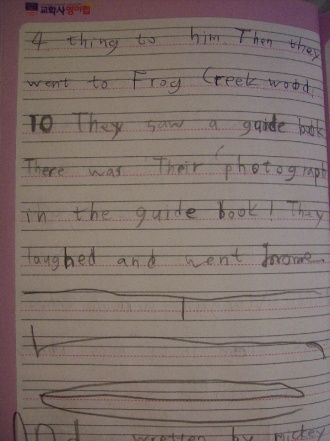 교학사
4 thing to him. Then they
went to Frog Creek wood.
10 They saw a guide book
There was Their photograph
in the guide book! They
laughed and went home.
written by mickey